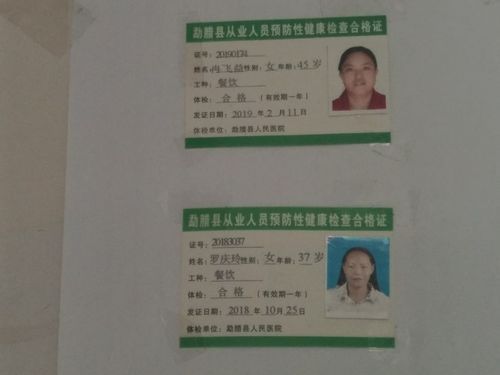 勐腊县从业人员预防性健康检查合格证
证号：20190174
姓名：冉飞益性别：女年龄：45岁
工种：餐饮
体检：合格（有效期一年）
发证日期：2019年2月11日
体检单位：勐腊县人民医院
勐腊县从业人员预防性健康检查合格证
证号：20183037
姓名：罗庆玲性别：女年龄：37岁
工种：餐饮
体检：合格（有效期一年）
发证日期：2018年10月25日
体检单位：勐腊县人民医院